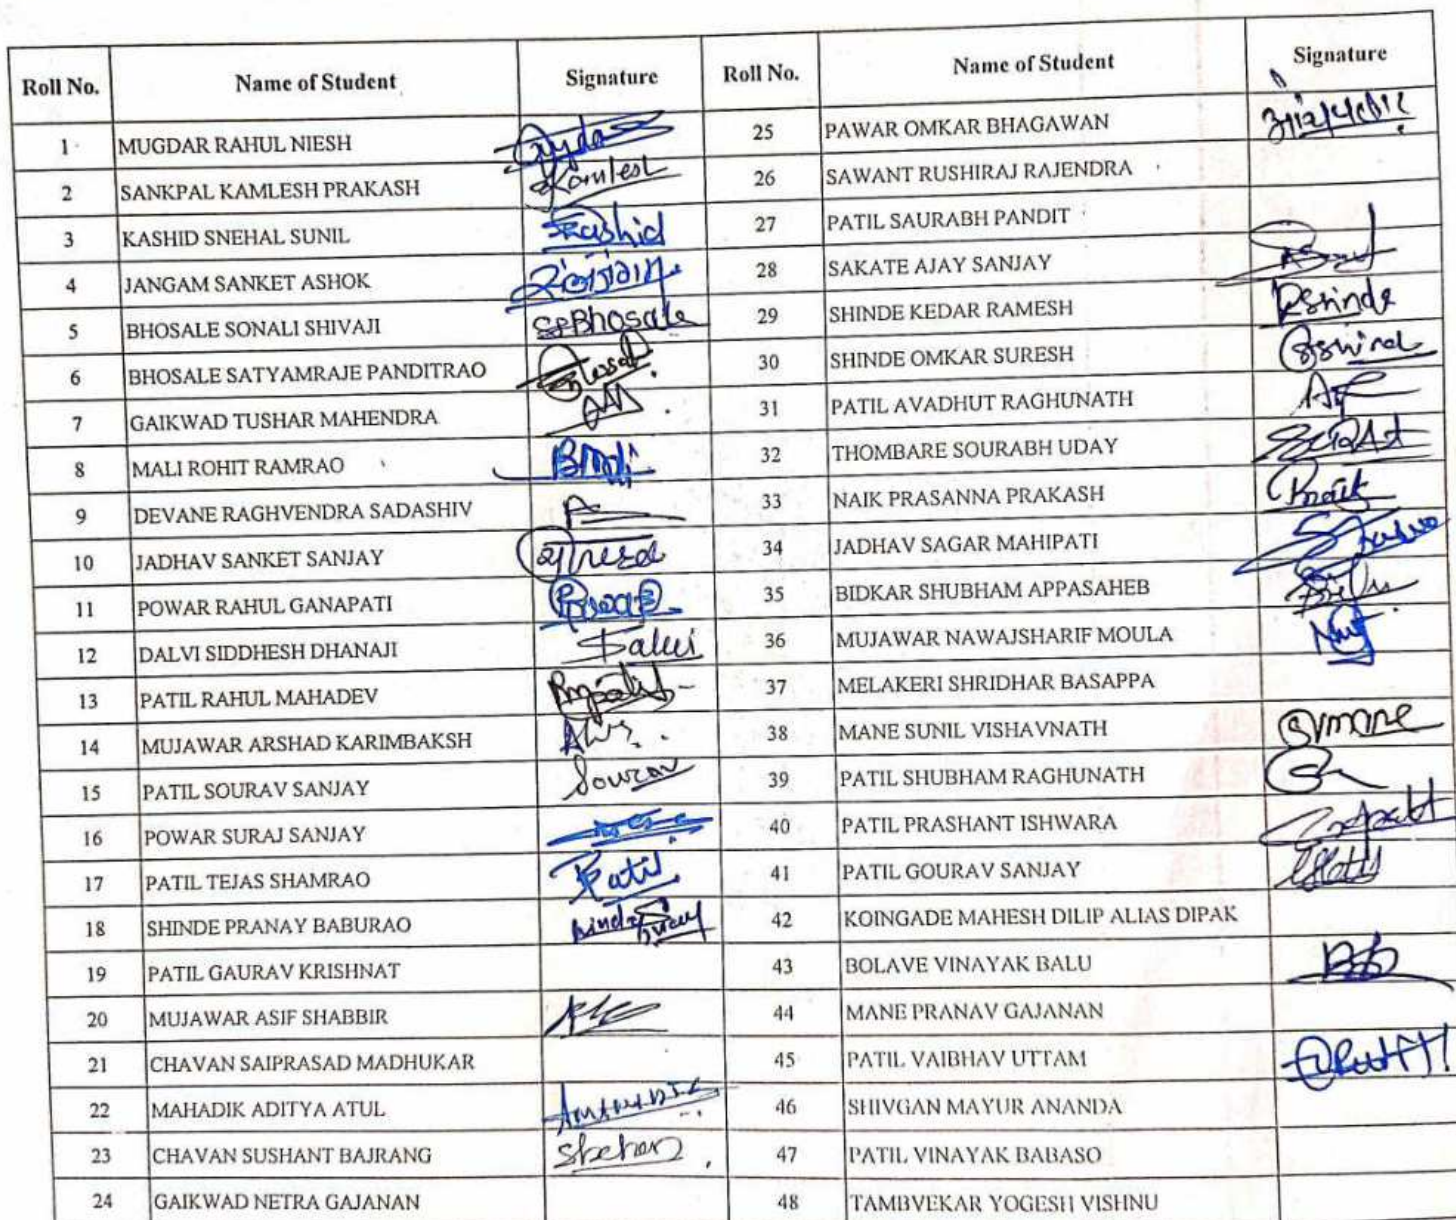 Roll No. Name of Student Signature Roll No. Name of Student Signature
1 MUGDAR RAHUL NIESH 25 PAWAR OMKAR BHAGAWAN
2 SANKPAL KAMLESH PRAKASH Kamlesh 26 SAWANT RUSHIRAJ RAJENDRA
3 KASHID SNEHAL SUNIL Kashid 27 PATIL SAURABH PANDIT
4 JANGAM SANKET ASHOK 28 SAKATE AJAY SANJAY
5 BHOSALE SONALI SHIVAJI SSBhosale 29 SHINDE KEDAR RAMESH KShinde
6 BHOSALE SATYAMRAJE PANDITRAO 30 SHINDE OMKAR SURESH
7 GAIKWAD TUSHAR MAHENDRA 31 PATIL AVADHUT RAGHUNATH
8 MALI ROHIT RAMRAO 32 THOMBARE SOURABH UDAY
9 DEVANE RAGHVENDRA SADASHIV 33 NAIK PRASANNA PRAKASH
10 JADHAV SANKET SANJAY 34 JADHAV SAGAR MAHIPATI
11 POWAR RAHUL GANAPATI 35 BIDKAR SHUBHAM APPASAHEB
12 DALVI SIDDHESH DHANAJI Dalvi 36 MUJAWAR NAWAJSHARIF MOULA
13 PATIL RAHUL MAHADEV 37 MELAKERI SHRIDHAR BASAPPA
14 MUJAWAR ARSHAD KARIMBAKSH 38 MANE SUNIL VISHAVNATH SVmane
15 PATIL SOURAV SANJAY Sourav 39 PATIL SHUBHAM RAGHUNATH
16 POWAR SURAJ SANJAY 40 PATIL PRASHANT ISHWARA
17 PATIL TEJAS SHAMRAO Patil 41 PATIL GOURAV SANJAY
18 SHINDE PRANAY BABURAO 42 KOINGADE MAHESH DILIP ALIAS DIPAK
19 PATIL GAURAV KRISHNAT 43 BOLAVE VINAYAK BALU
20 MUJAWAR ASIF SHABBIR 44 MANE PRANAV GAJANAN
21 CHAVAN SAIPRASAD MADHUKAR 45 PATIL VAIBHAV UTTAM
22 MAHADIK ADITYA ATUL 46 SHIVGAN MAYUR ANANDA
23 CHAVAN SUSHANT BAJRANG 47 PATIL VINAYAK BABASO
24 GAIKWAD NETRA GAJANAN 48 TAMBVEKAR YOGESH VISHNU